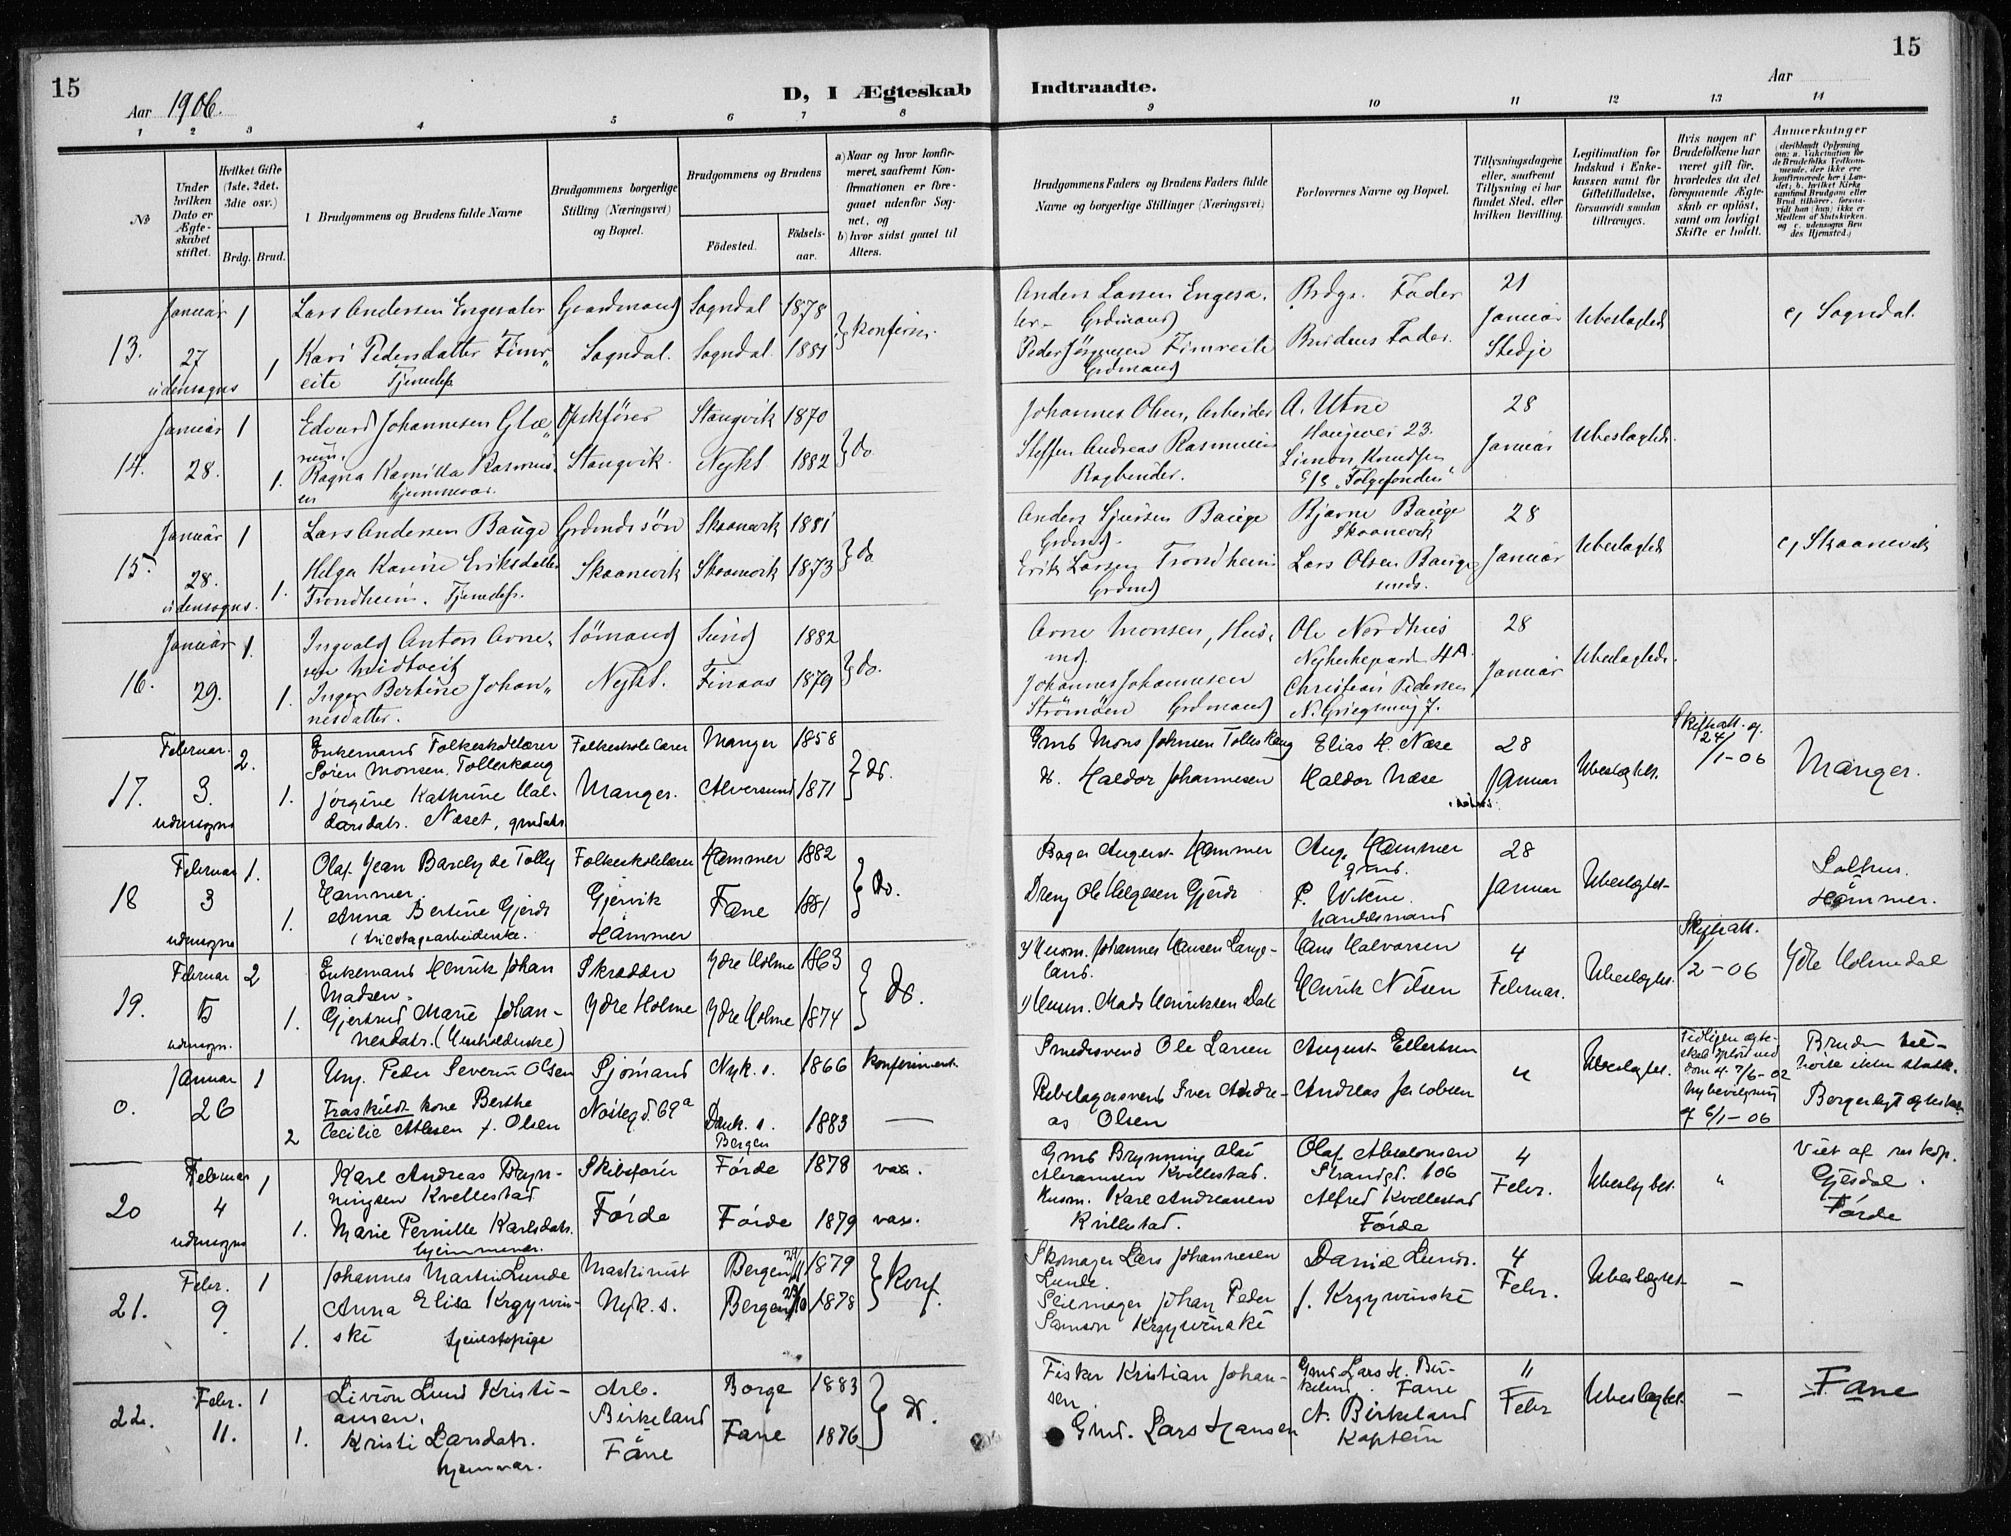 15
Aar 1906.
D, I Ægteskab
Indtraadte.
Aar
15
1 2 3 4 5 6 7 8 9 10 11 12 13 14
No
Under hvilken Dato er Ægteskabet stiftet.
Hvilket Gifte (1ste, 2det, 3die osv.)
Brdg. Brud.
Brudgommens og Brudens fulde Navne
Brudgommens borgerlige Stilling (Næringsvei) og Bopæl.
Brudgommens og Brudens
Födested.
Födselsaar.
a) Naar og hvor konfirmeret, saafremt Konfirmationen er foregaaet udenfor Sognet, og
b) hvor sidst gaaet til Alters.
Brudgommens Faders og Brudens Faders fulde Navne og borgerlige Stillinger (Næringsvei)
Forlovernes Navne og Bopæl.
Tillysningsdagene eller, saafremt Tillysning ei har fundet Sted, efter hvilken Bevilling.
Legitimation for Indskud i Enkekassen samt for Giftetilladelse, forsaavidt saadan tiltrænges.
Hvis nogen af Brudefolkene har været gift før, hvorledes da det foregaaende Ægteskab er oplöst, samt om lovligt Skifte er holdt.
Anmærkninger
13. Januar 27 udensogns 1 1
Lars Andersen Engesæter Gaardmand Sogndal 1878
Kari Pedersdatter Fimreite Tjenestep. Sogndal. Sogndal. 1881
konfirm.
Anders Larsen Engesæter Grdmand
Peder Jörgensen Fimreite Grdmand
Brdgs. Fader
Brudens Fader.
21 Januar Stedje
Ubeslægted
c, Sogndal.
14. Januar 28. 1 1.
Edvard Johannesen
Stangvik 1870
Ragna Kamilla Rasmussen hjemmevær.
Stangvik. Nykt 1882
do
Johannes Olsen, Arbeider
Steffen Andreas Rasmussen Bogbinder.
A. Utne
Haugevei 23.
Simon Knudsen
S/S "Folgefonden"
28 Januar
Ubeslægted.
15. Januar 28. udensogns. 1 1.
Lars Andersen Bauge Grdmds sön Skaanevik 1881
Helga Karine Eriksdatter Trondheim. Tjenestep. Skaanevik Skaanevik 1873
do
Anders Sjursen Bauge Grdmd.
Erik Larsen Trondheim Grdmd
Bjarne Bauge Skaanevik
Lars Olsen Bauge
28 Januar
Ubeslægted
c, Skaanevik
16. Januar 29. 1. 1.
Ingvald Anton Arnesen Midtveit Sömand Sund 1882
Inger Bertine Johannesdatter. Nykt. Finaas 1879
do.
Arne Monsen, Husmd.
Johannes Johannesen Strømøen Grdmand
Ole Nordhus
Nykirkegaard. 4A.
Christian Pedersen
N. Griegsmug 7.
28 Januar
Ubeslægted.
17. Februar. 3. udensogns 2. 1.
Enkemand Folkeskolelærer Sören Monsen Tolleskaug Folkeskolelærer Manger 1858
Jørgine Kathrine Haldorsdatr. Næset, grmdatr. Manger. Alversund 1871
do.
Gmd Mons Johnsen Tolleskaug
do. Haldor Johannesen
Elias H. Næse
Haldor Næse
28 Januar
Ubeslægtet.
Skifteatt. af 24/1-06
Manger.
18 Februar 3 udensogns 1. 1.
Olaf Jean Barcly de Tolly Hammer. Folkeskolelærer Hammer 1882
Anna Bertine Gjerde (tricotagearbeiderske. Gjervik Hammer Fane 1881
do.
Bager August Hammer
Dreng Ole Helgesen Gjerde
Aug. Hammer gmd.
P. Wikne. handelsmand
28 Januar
Ubeslægtet
Hammer.
19. Februar 5 udensogn. 2 1.
Enkemand Henrik Johan Madsen. Skrædder Ydre Holme 1863
Gjertrud Marie Johannesdatr. (Husholderske) Ydre Holme Ydre Holme 1874
do.
Husm. Johannes Hansen Langeland.
Husm. Mads Henriksen Dale
Hans Halvorsen
Henrik Nilsen
4 Februar.
Ubeslægtet.
Skifteatt. /2-06
Ydre Holmedal
0. Januar 26 1 2
Ung. Peder Severin Olsen Sjømand Nyk. s. 1866 konfirmert
Fraskildt kone Berthe Cecilie Atlesen f. Olsen Nøsteg d. 69a Domk. s. Bergen 1883 —
Smedesvend Ole Larsen
Rebslagersvend Iver Andreas Olsen
August Ellertsen
Andreas Jacobsen
"
Ubeslægtet.
Tidligere ægteskab opløst ved dom 4. 7/6-02 Ny bevilgning af 6/1-06
Bruden tilhörte ikke statsk.
Borgerligt ægteskab
20 Februar 4 udensogns 1 1.
Karl Andreas Brynningsen Kvellestad Skibsfører Førde 1878 vax.
Marie Pernille Karlsdatr. hjemmevær. Førde Førde 1879 vax.
Gmd Brynning Olai Abramsen Kvillestad.
Husm. Karl Andreasen Kvillestad.
Olaf Absalonsen
Strandgt. 106
Alfred Kvellestad
Førde
4 Febr.
Ubeslægtet.
"
Viet af res kap. Gjesdal. Førde
21. Febr. 9. 1 1.
Johannes Martin Lunde Maskinist Bergen 1879
Anna Elisa Krzywinski tjenestepige Nyk. s. Bergen 1878
Konf.
Skomager Lars Johannesen Lunde.
Seilmager Johan Peder Samson Krzywinski
Daniel Lunde.
J. Krzywinski
4 Febr.
Ubeslægtet
—
22. Febr. 11. 1 1.
Livion Lund Kristiansen. Arb. Borge 1883
Kristi Larsdatr. hjemvær. Birkeland Fane Fane 1876
do.
Fisker Kristian Johansen
Gmd. Lars Hansen
Gmd Lars H. Birkeland. Fane
A. Birkeland Kaptein
11 Febr
Ubeslægtet.
—
Fane